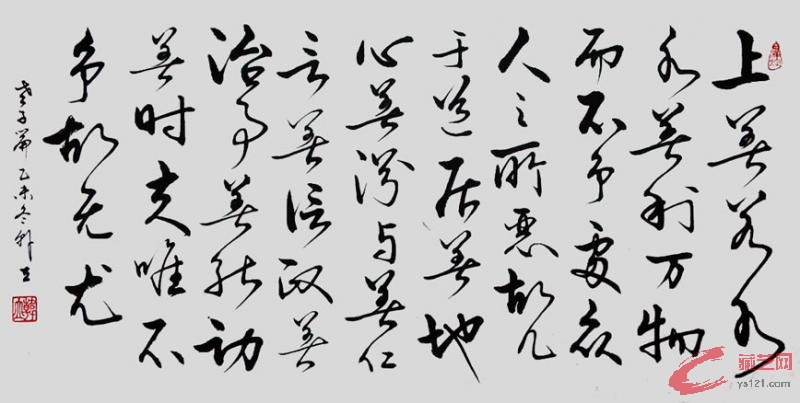 上善若水
水善利万物
而不争处众
人之所恶故几
于道居善地
心善渊与善仁
言善信政善
治事善能动
善时夫唯不
争故无尤
老子篇乙未冬
藏艺网
ys121.com